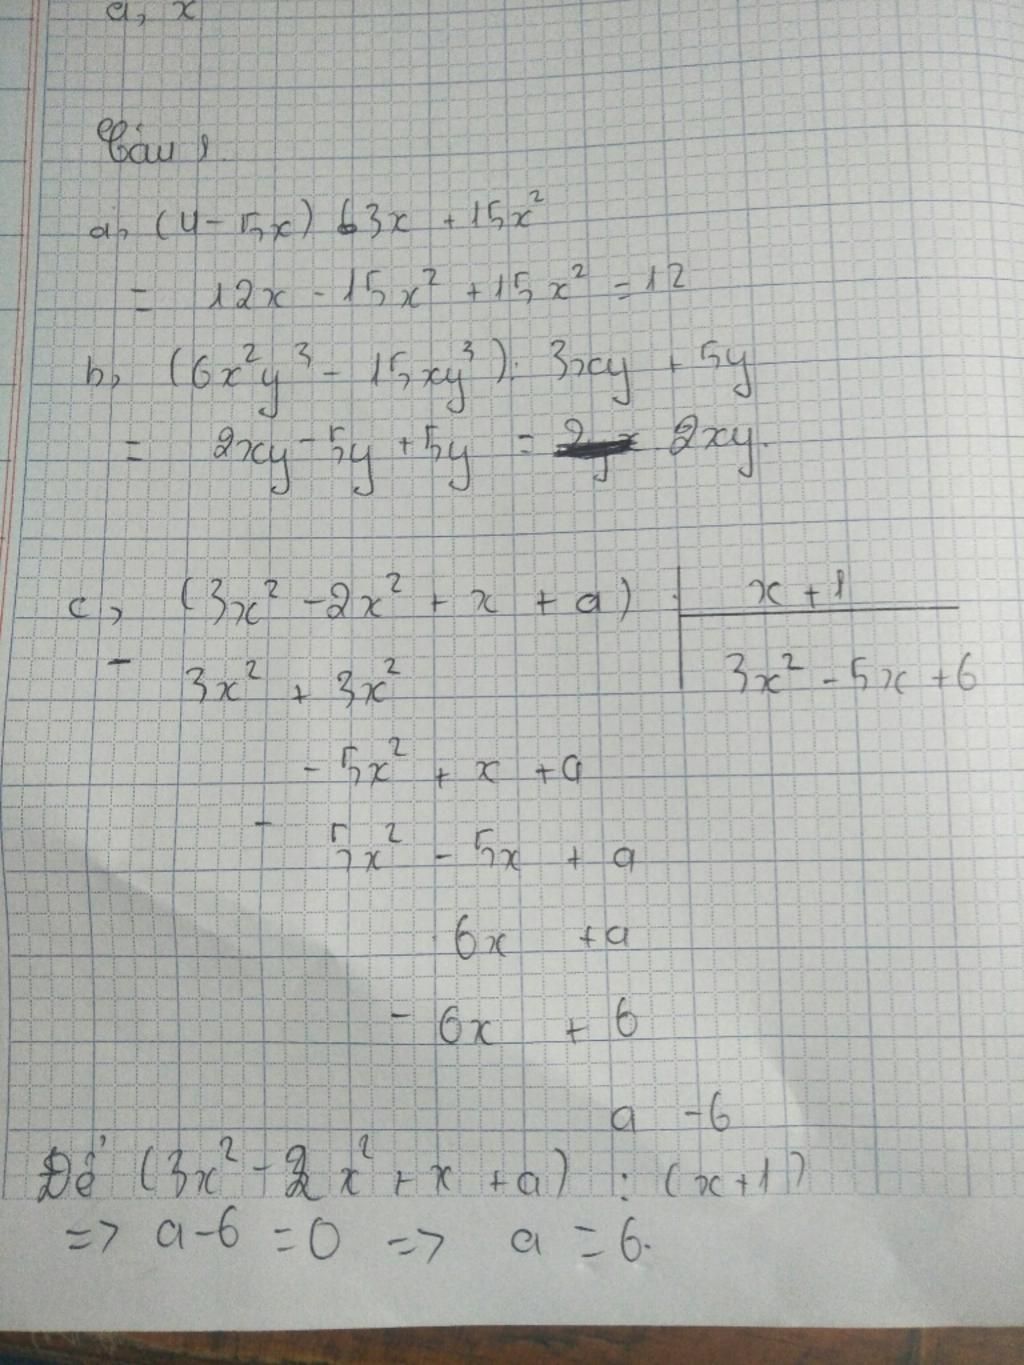 a, x
Câu 1.
a, (4-5x) 3x + 15x²
= 12x - 15x² + 15x² = 12
b, (6x²y³ - 15xy³): 3xy + 5y
= 2xy - 5y + 5y = 2xy.
c, (3x² - 2x² + x + a) : x + 1
- 3x² + 3x² 3x² - 5x + 6
- 5x² + x + a
- 5x² - 5x + a
6x + a
- 6x + 6
a - 6
Để (3x² - 2x² + x + a) : (x+1)
=> a - 6 = 0 => a = 6.